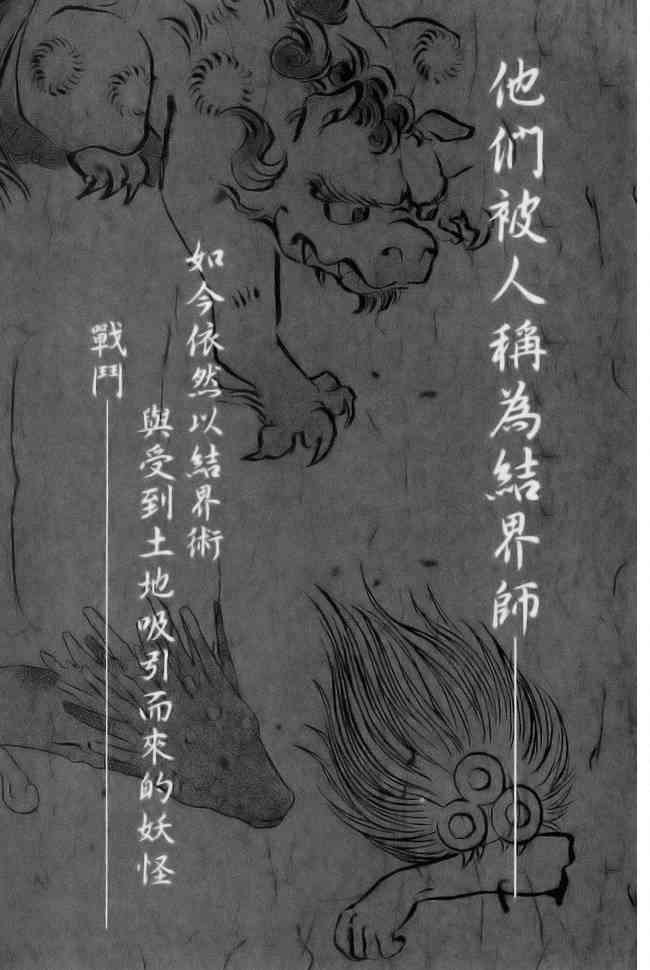 他們被人稱為結界師──
如今依然以結界術
與受到土地吸引而來的妖怪
戰鬥──